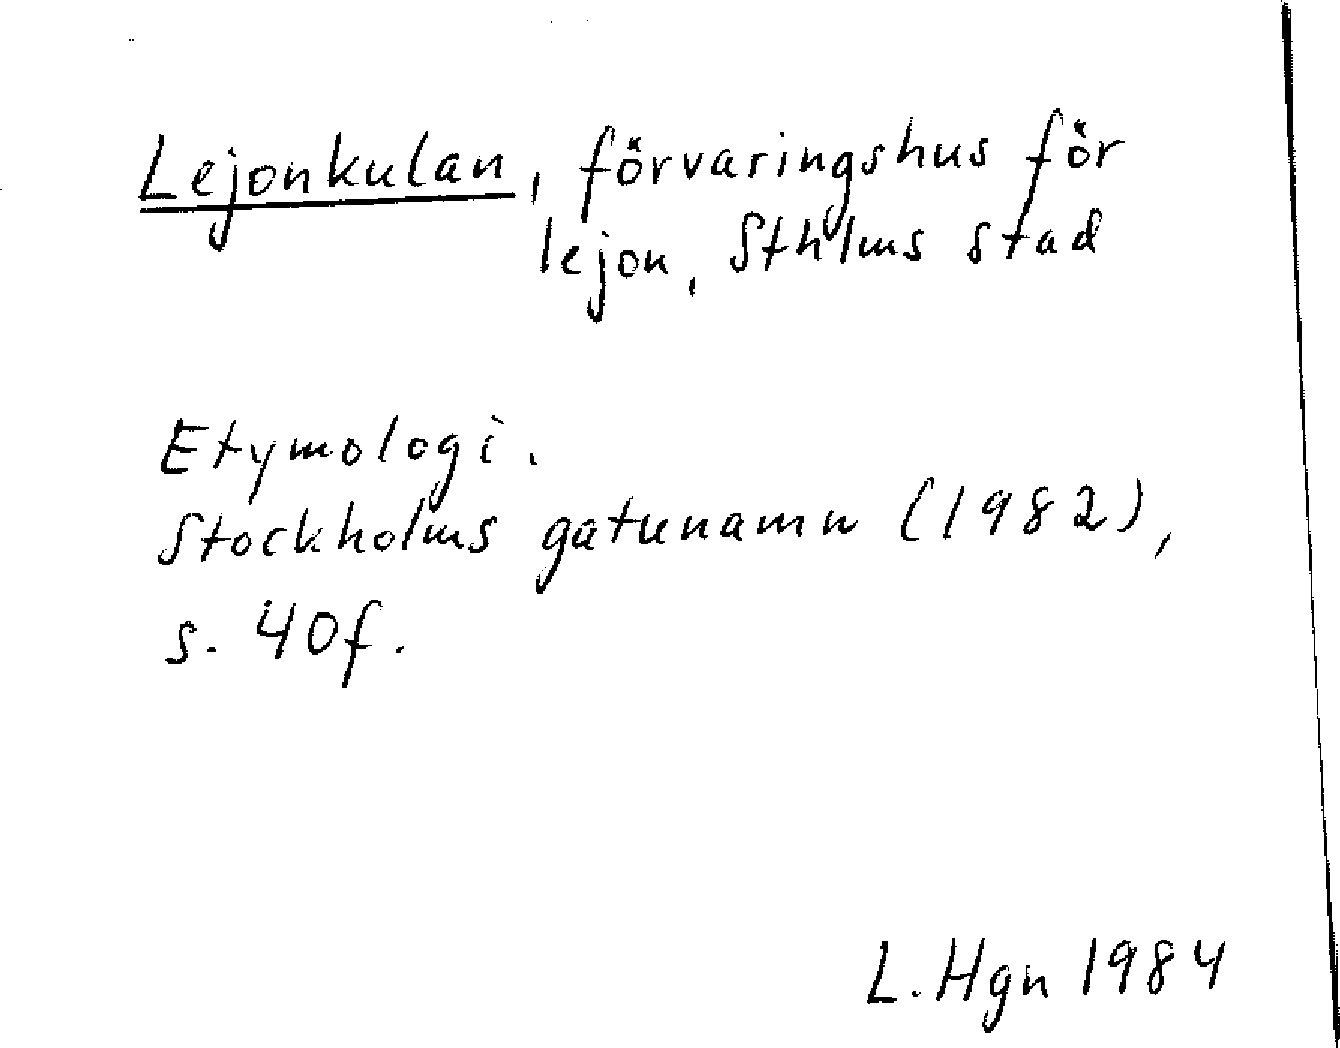 Lejonkulan, förvaringshus för
lejon, Sthlms stad
Etymologi.
Stockholms gatunamn (1982),
s. 40f.
L. Hgn 1984